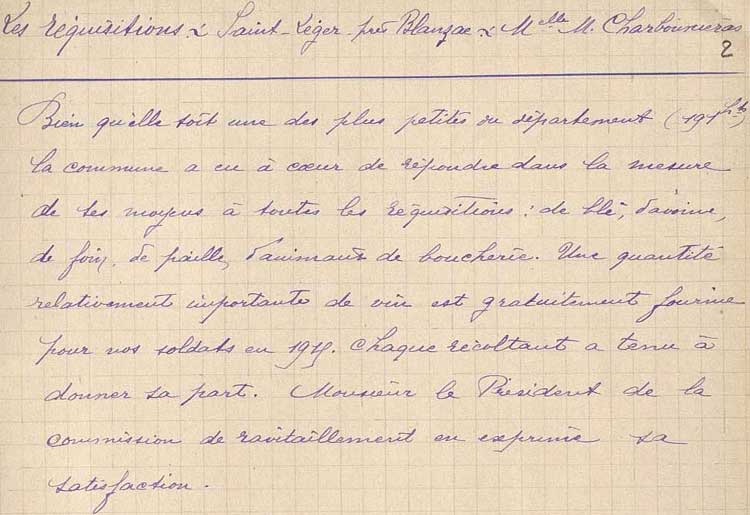 Les réquisitions. Saint-Léger près Blanzac Melle M. Charbonnieras
2
Bien qu'elle soit une des plus petites du département (191 hts)
la commune a eu à cœur de répondre dans la mesure
de ses moyens à toutes les réquisitions: de blé, d'avoine,
de foin, de paille, d'animaux de boucherie. Une quantité
relativement importante de vin est gratuitement fournie
pour nos soldats en 1915. Chaque récoltant a tenu à
donner sa part. Monsieur le Président de la
commission de ravitaillement en exprime sa
satisfaction.